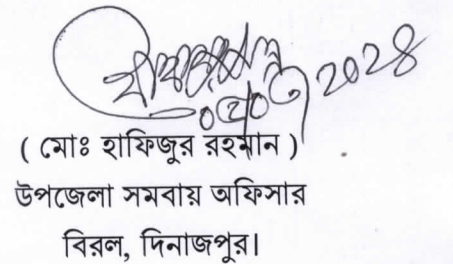 ২০২৪
( মোঃ হাফিজুর রহমান )
উপজেলা সমবায় অফিসার
বিরল, দিনাজপুর।